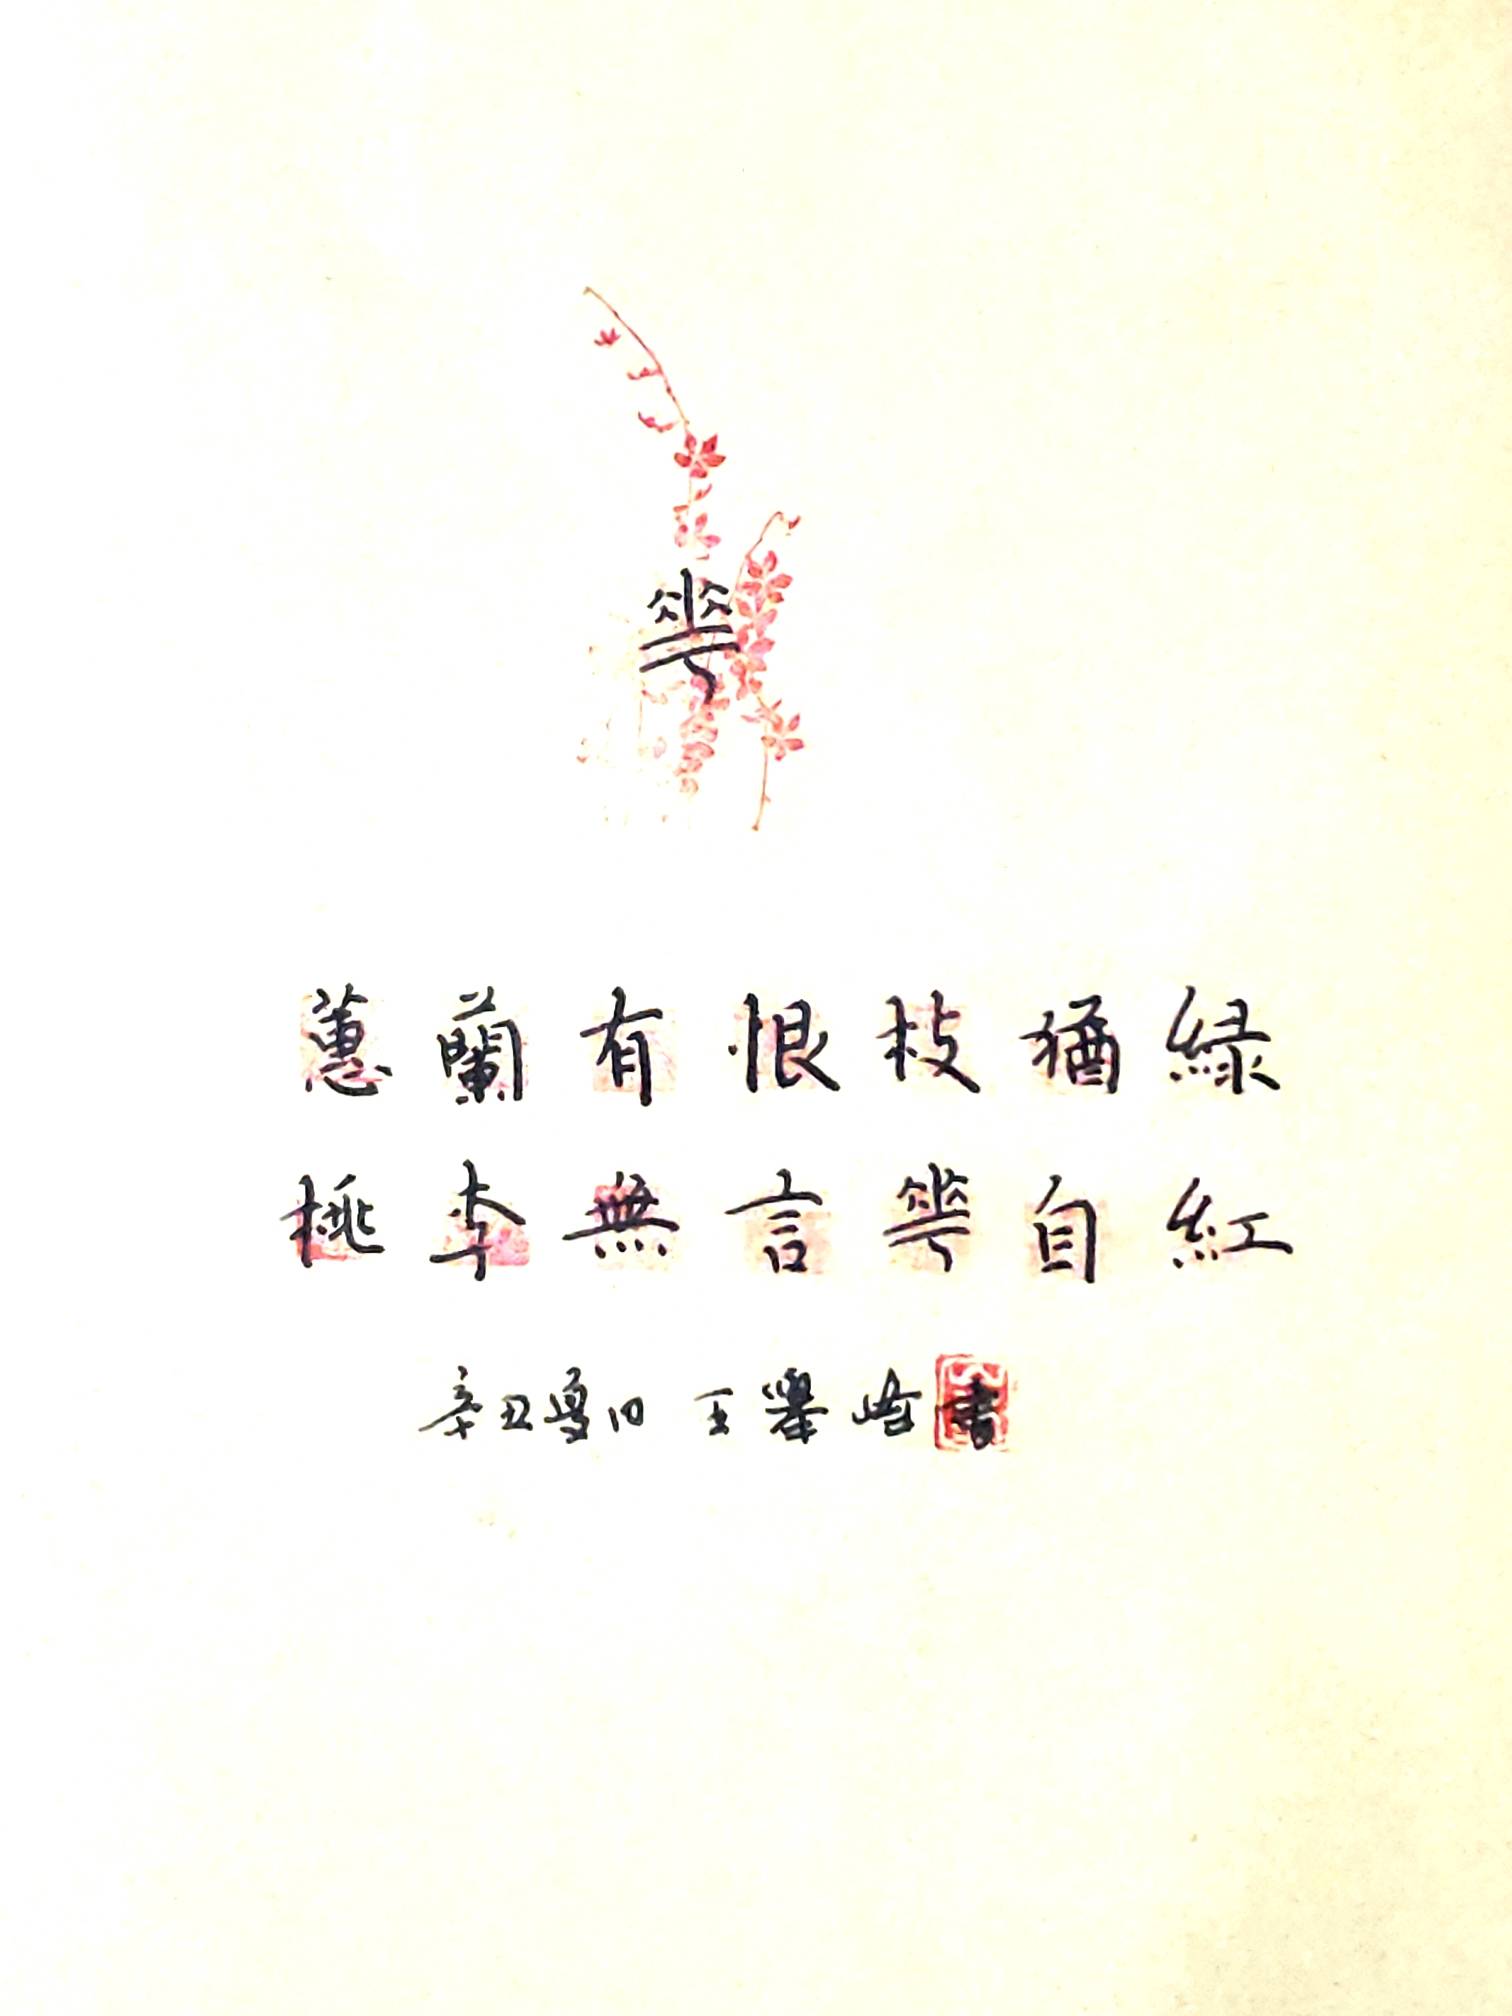 花
蕙蘭有恨枝猶綠
桃李無言花自紅
辛丑夏日 王舉 書